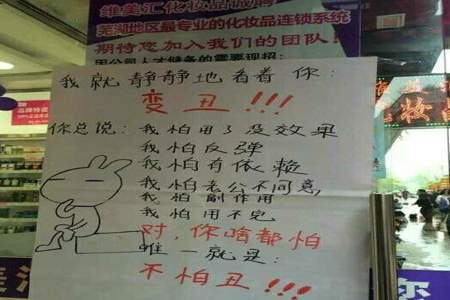 维美汇化妆品诚聘
芜湖地区最专业的化妆品连锁系统
期待您加入我们的团队!
因公司人才储备的需要现招:
我就静静地看着你:
变丑!!!
你总说:我怕用了没效果
我怕反弹
我怕有依赖
我怕老公不同意
我怕副作用
我怕用不完
对,你啥都怕
唯一就是:
不怕丑!!!
品牌特卖